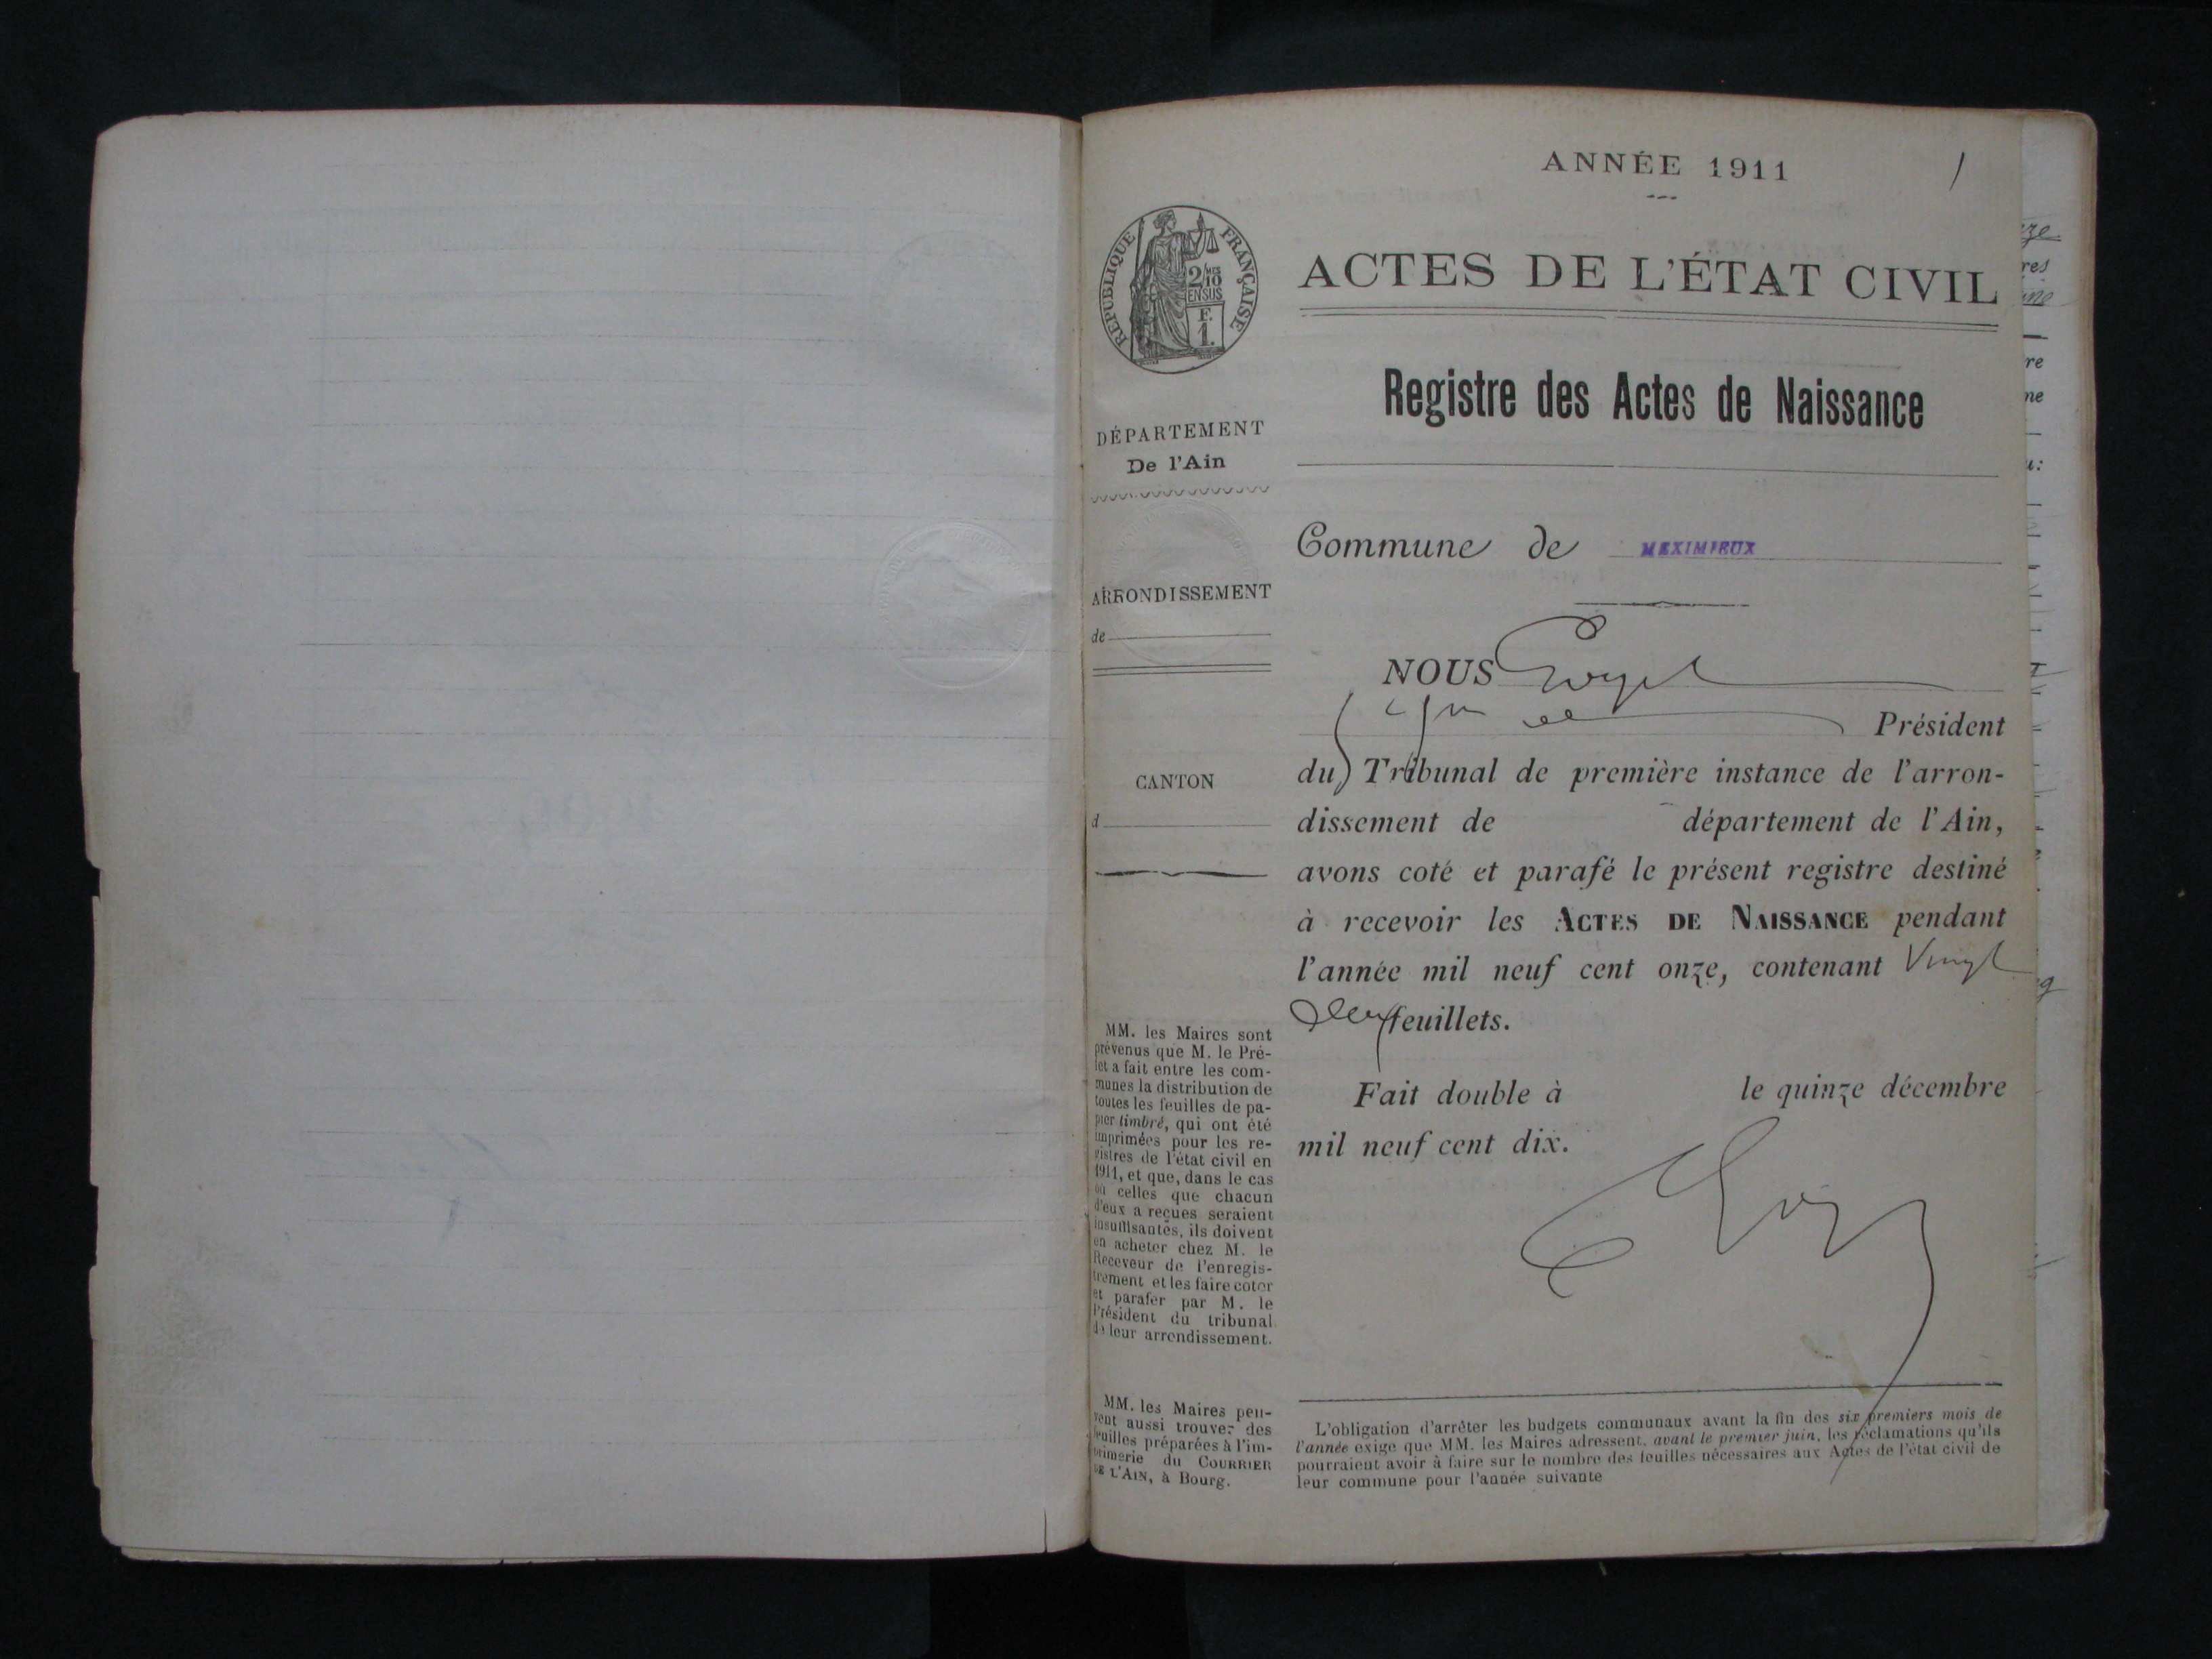 ANNÉE 1911
1
RÉPUBLIQUE FRANÇAISE
2/10 MES
EN SUS
F.
1.
ACTES DE L'ÉTAT CIVIL
Registre des Actes de Naissance
DÉPARTEMENT
De l'Ain
ARRONDISSEMENT
de
CANTON
d
MM. les Maires sont
prévenus que M. le Pré-
fet a fait entre les com-
munes la distribution de
toutes les feuilles de pa-
pier timbré, qui ont été
imprimées pour les re-
gistres de l'état civil en
1911, et que, dans le cas
où celles que chacun
d'eux a reçues seraient
insuffisantes, ils doivent
en acheter chez M. le
Receveur de l'enregis-
trement et les faire coter
et parafer par M. le
Président du tribunal
de leur arrondissement.
MM. les Maires peu-
vent aussi trouver des
feuilles préparées à l'im-
primerie du COURRIER
DE L'AIN, à Bourg.
Commune de MEXIMIEUX
NOUS
Président
du Tribunal de première instance de l'arron-
dissement de département de l'Ain,
avons coté et parafé le présent registre destiné
à recevoir les ACTES DE NAISSANCE pendant
l'année mil neuf cent onze, contenant Vingt
deux feuillets.
Fait double à le quinze décembre
mil neuf cent dix.
L'obligation d'arrêter les budgets communaux avant la fin des six premiers mois de
l'année exige que MM. les Maires adressent, avant le premier juin, les réclamations qu'ils
pourraient avoir à faire sur le nombre des feuilles nécessaires aux Actes de l'état civil de
leur commune pour l'année suivante